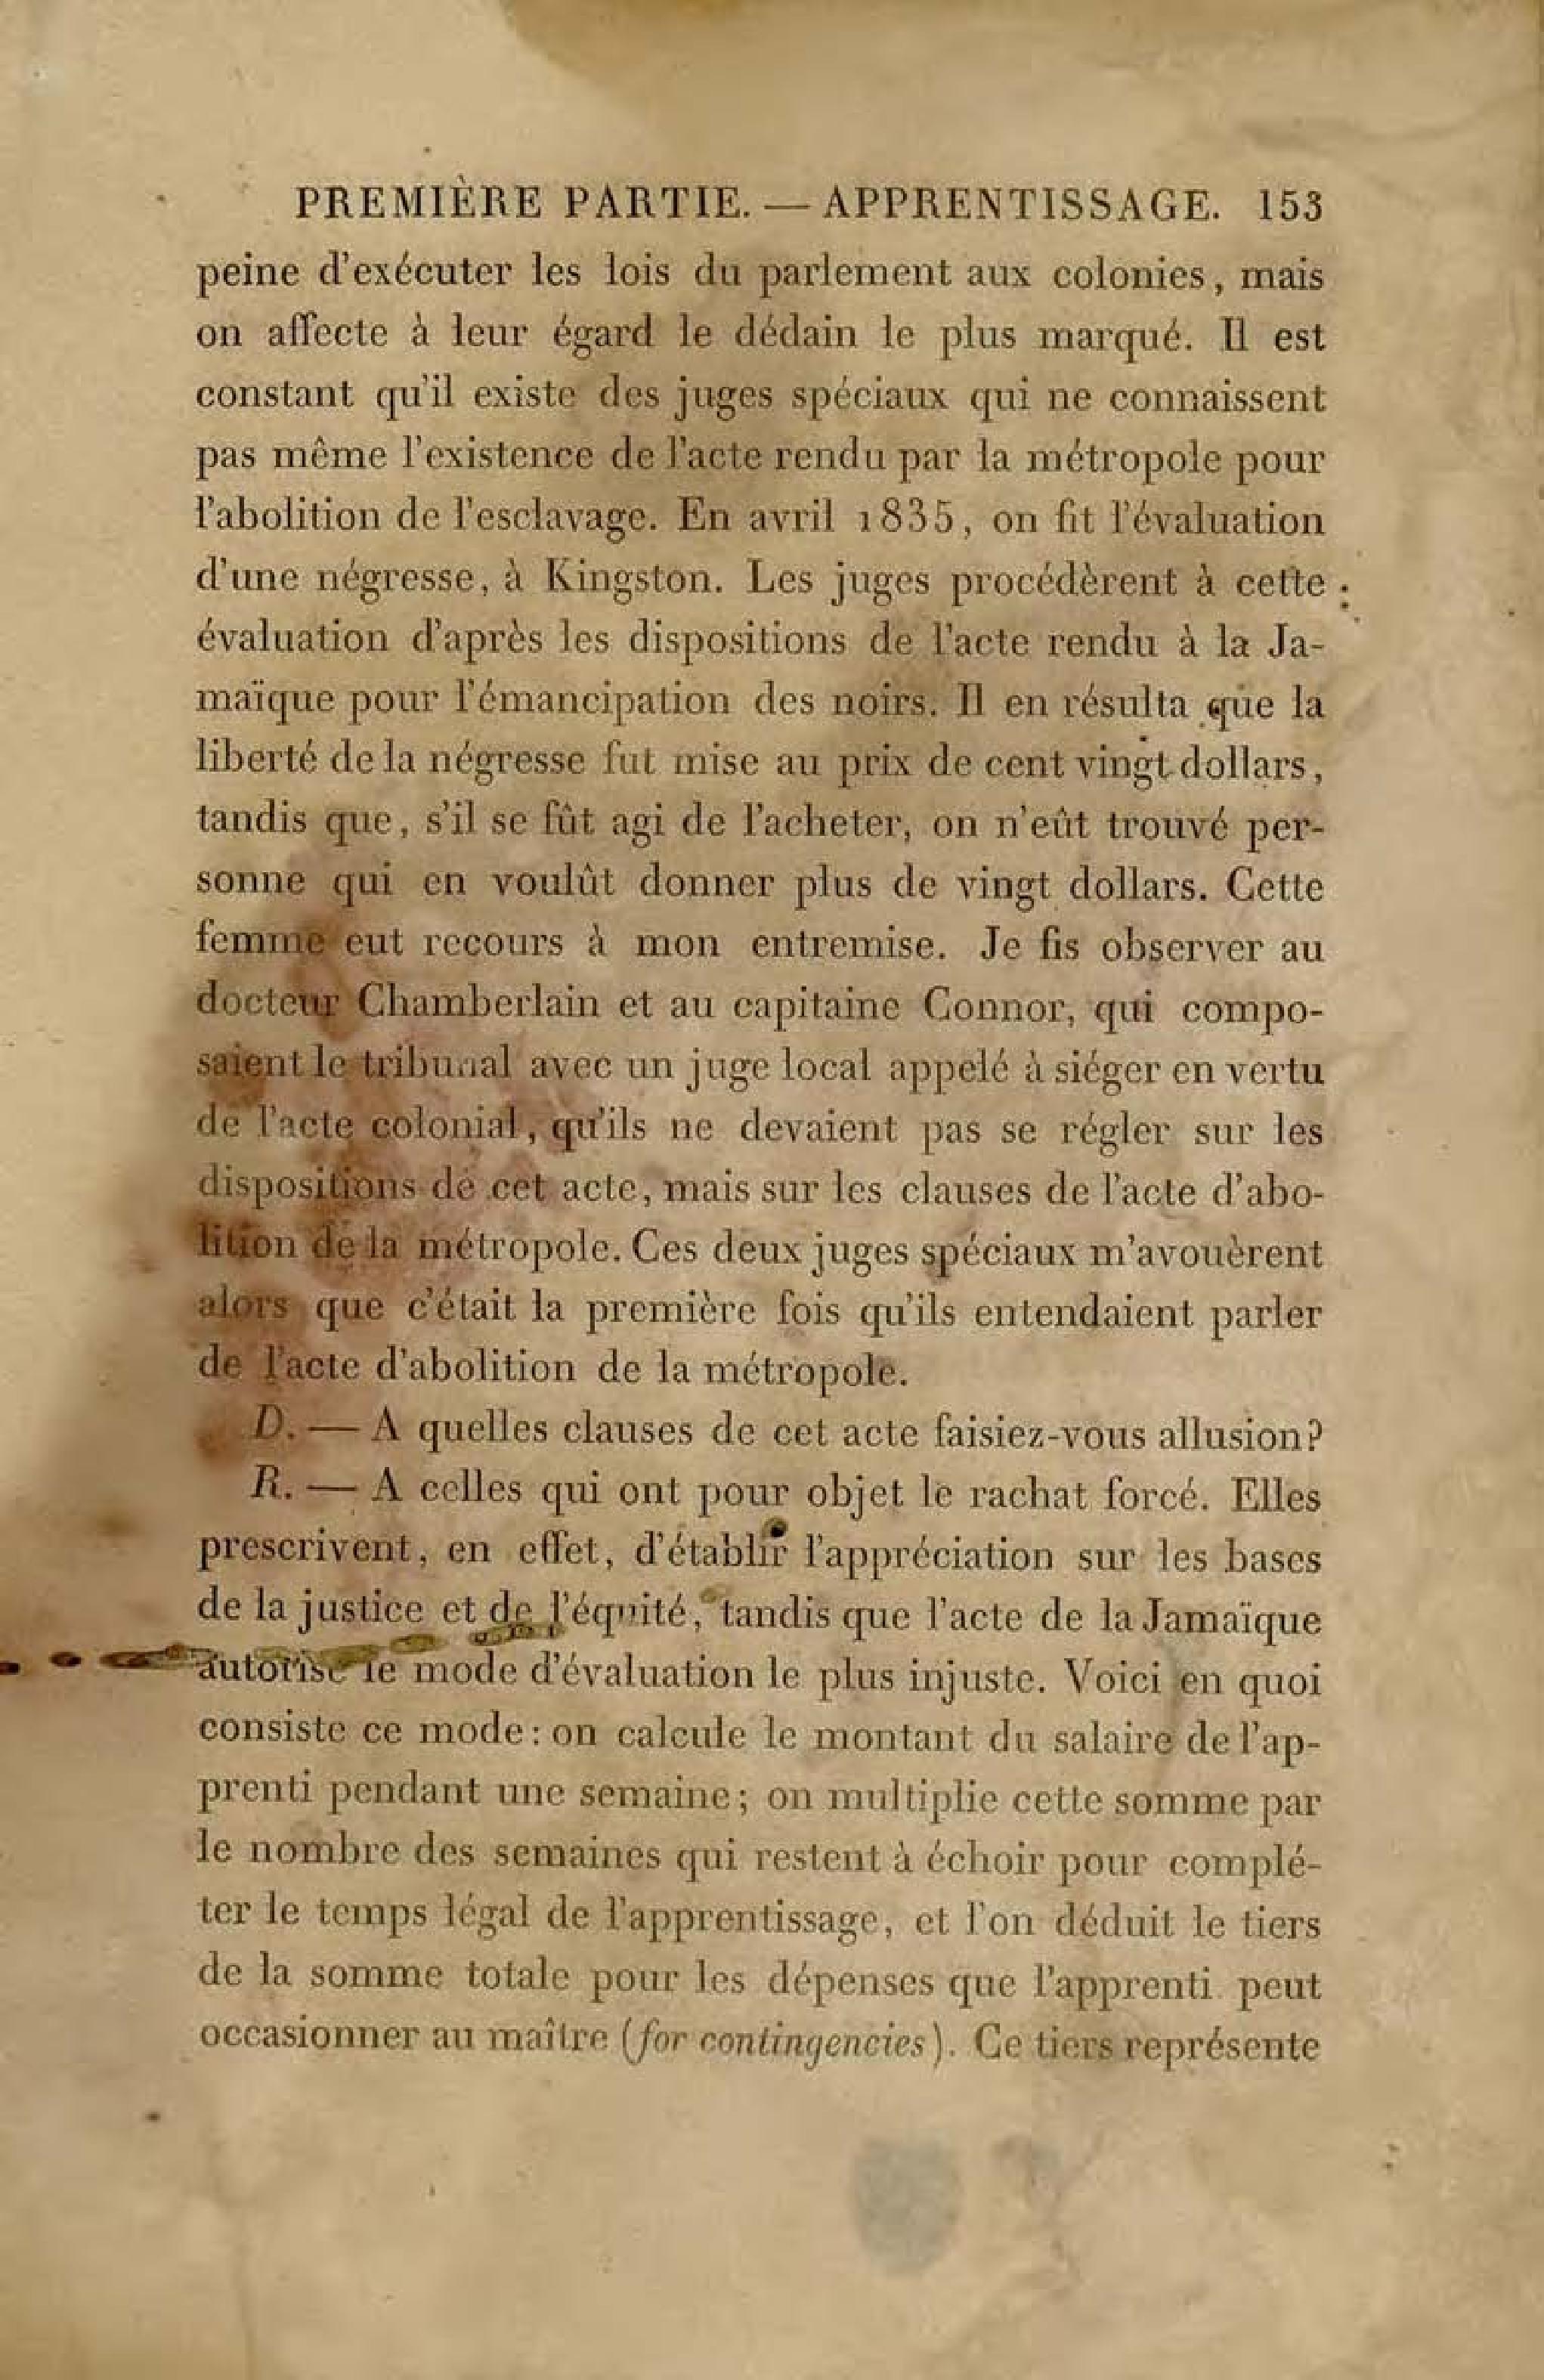 PREMIÈRE PARTIE. — APPRENTISSAGE. 153
peine d'exécuter les lois du parlement aux colonies, mais
on affecte à leur égard le dédain le plus marqué. Il est
constant qu'il existe des juges spéciaux qui ne connaissent
pas même l'existence de l'acte rendu par la métropole pour
l'abolition de l'esclavage. En avril 1835, on fit l'évaluation
d'une négresse, à Kingston. Les juges procédèrent à cette
évaluation d'après les dispositions de l'acte rendu à la Ja-
maïque pour l'émancipation des noirs. Il en résulta que la
liberté de la négresse fut mise au prix de cent vingt dollars,
tandis que, s'il se fût agi de l'acheter, on n'eût trouvé per-
sonne qui en voulût donner plus de vingt dollars. Cette
femme eut recours à mon entremise. Je fis observer au
docteur Chamberlain et au capitaine Connor, qui compo-
saient le tribunal avec un juge local appelé à siéger en vertu
de l'acte colonial, qu'ils ne devaient pas se régler sur les
dispositions de cet acte, mais sur les clauses de l'acte d'abo-
lition de la métropole. Ces deux juges spéciaux m'avouèrent
alors que c'était la première fois qu'ils entendaient parler
de l'acte d'abolition de la métropole.
D. — A quelles clauses de cet acte faisiez-vous allusion?
R. — A celles qui ont pour objet le rachat forcé. Elles
prescrivent, en effet, d'établir l'appréciation sur les bases
de la justice et de l'équité, tandis que l'acte de la Jamaïque
autorise le mode d'évaluation le plus injuste. Voici en quoi
consiste ce mode: on calcule le montant du salaire de l'ap-
prenti pendant une semaine; on multiplie cette somme par
le nombre des semaines qui restent à échoir pour complé-
ter le temps légal de l'apprentissage, et l'on déduit le tiers
de la somme totale pour les dépenses que l'apprenti peut
occasionner au maître (for contingencies). Ce tiers représente